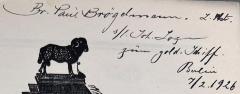 Br. Paul Brögelmann. z. Abt.
s/l Joh. Loge
zum gold. Schiff.
Berlin
7/2. 1926